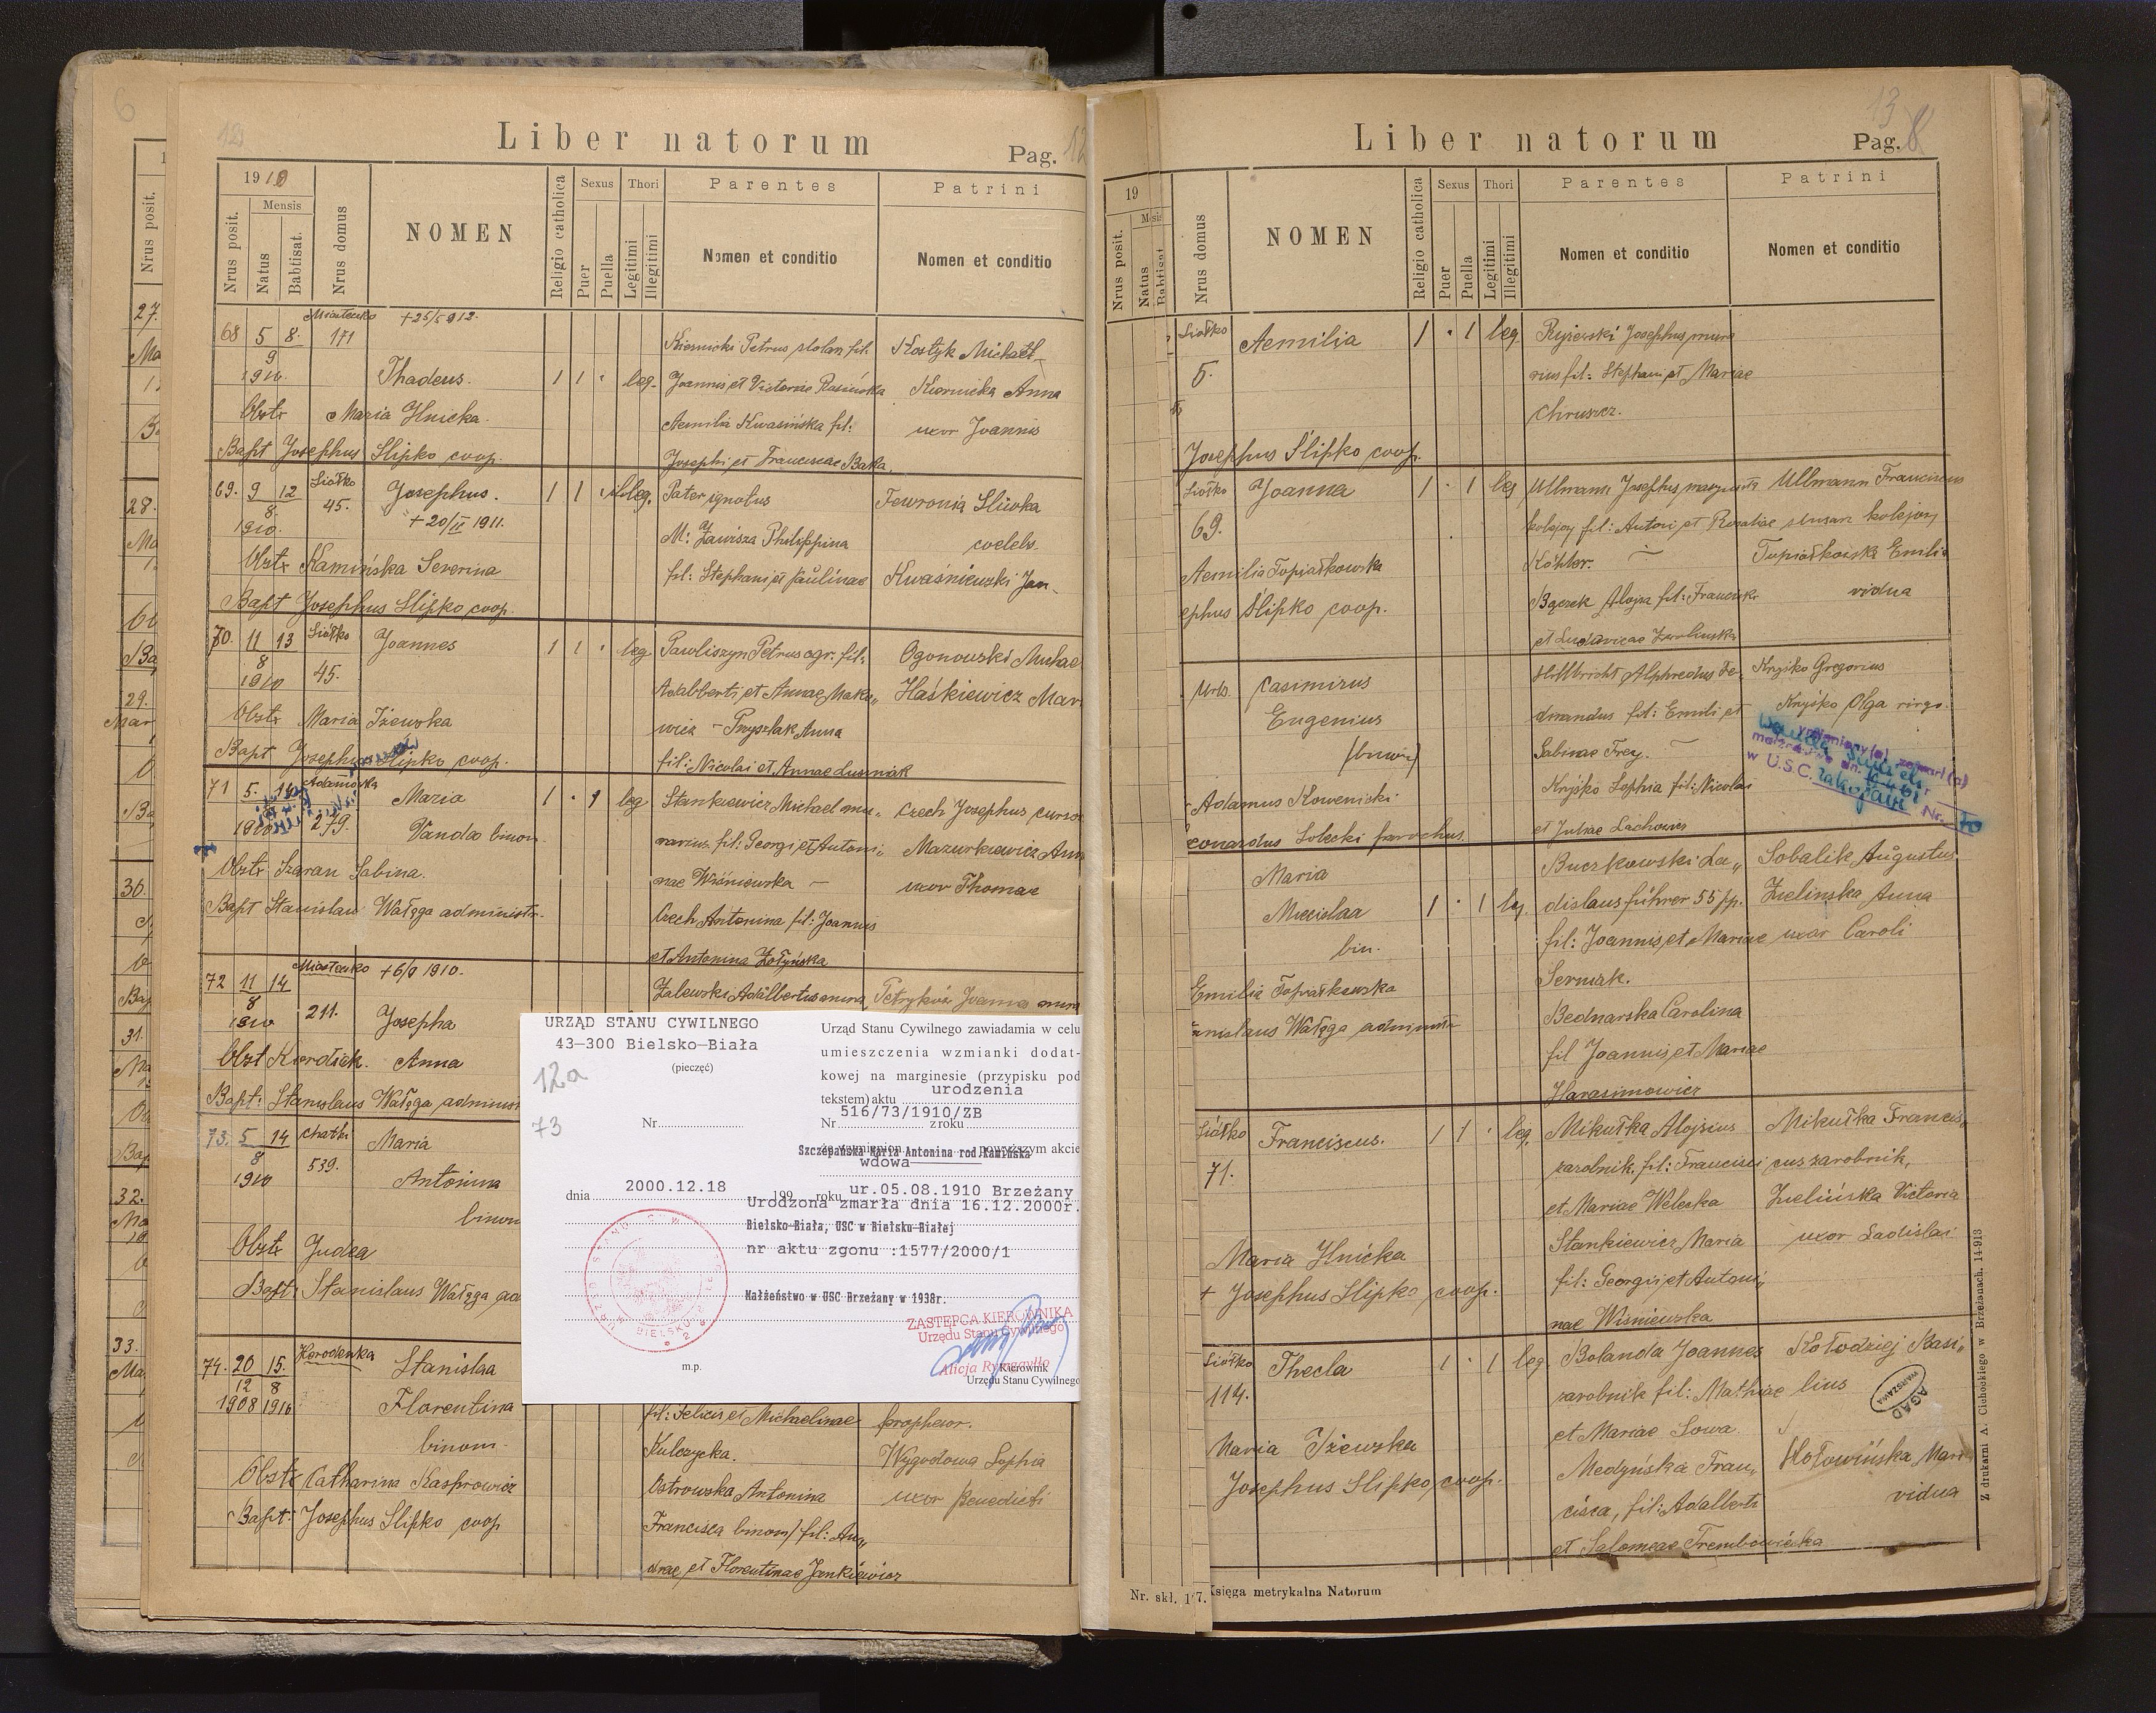 Liber natorum
Pag. 12
1910
Nrus posit.
Mensis
Natus
Babtisat.
Nrus domus
NOMEN
Religio catholica
Sexus
Puer
Puella
Thori
Legitimi
Illegitimi
Parentes
Nomen et conditio
Patrini
Nomen et conditio
68 5 8. Miasteczko 171 +25/5 912.
9
1910.
Thadeus. 1 1 · leg.
Obstr Maria Hnicka.
Bapt Josephus Slipko coop.
Kiernicki Petrus stolarz fil.
Joannis et Victoriae Rasińska
Aemilia Kwasińska fil:
Josephi et Franciscae Baka.
Kostyk Michael
Kiernicka Anna
uxor Joannis
69. 9 12 Siółko 45. Josephus. 1 1 · illeg.
8
1910.
+20/II 1911.
Obstr Kamińska Severina
Bapt Josephus Slipko coop.
Pater ignotus
M: Zawisza Philippina
fil: Stephani et Paulinae
Fewronia Sliwka
coelebs.
Kwaśniewski Jan
70. 11 13 Siółko Joannes 1 1 · leg
8
1910 45.
Obstr Maria Iżewska
Bapt Josephus Slipko coop.
Pawliszyn Petrus agr. fil:
Adalberti et Annae Make„
wicz – Przyszlak Anna
fil: Nicolai et Annae Lusniak
Ogonowski Michae
Haśkiewicz Mar
71 5. 14 Adamówka Maria 1 · 1 leg
1910 279. Vanda binom
Obstr Szaran Sabina.
Bapt Stanislaus Wałęga administr.
Stankiewicz Michael mu„
rarius fil: Georgi et Antoni„
nae Wiśniewska –
Czech Antonina fil: Joannis
et Antonina Zołyńska
Czech Josephus curso
Mazurkiewicz Ann
uxor Thomae
72 11 14 Miasteczko +6/9 1910.
8
1910 211. Josepha
Obst Kierdiak. Anna
Bapt: Stanislaus Wałęga administ
Zalewski Adalbertus mura
Petryków Joannes mura
73. 5 14 Chatki Maria
8
1910 539. Antonina
binom
Obstr Judra
Bapt: Stanislaus Wałęga ad
URZĄD STANU CYWILNEGO
43-300 Bielsko-Biała
(pieczęć)
12a
73
Nr
dnia 2000.12.18 199 roku
m.p.
Urząd Stanu Cywilnego zawiadamia w celu
umieszczenia wzmianki dodat-
kowej na marginesie (przypisku pod
tekstem) aktu urodzenia
Nr 516/73/1910/ZB z roku
Szczepańska Maria Antonina rod.Kamińska
powyższym akcie
wdowa
ur.05.08.1910 Brzeżany
Urodzona zmarła dnia 16.12.2000r.
Bielsko-Biała, USC w Bielsku-Białej
nr aktu zgonu :1577/2000/1
Małżeństwo w USC Brzeżany w 1938r.
ZASTĘPCA KIEROWNIKA
Urzędu Stanu Cywilnego
Alicja Ryngayłło
Kierownik
Urzędu Stanu Cywilnego
74. 20 15. Horodenka Stanislaa
12 8
1908 1910 Florentina
binom.
Obstr Catharina Kasprowicz
Bapt: Josephus Slipko coop
fil: Felicis et Michaelinae
Kulczycka.
Ostrowska Antonina
Francisca binom/ fil: An„
dreae et Florentinae Jankiewicz
prophesor.
Wygodowa Sophia
uxor Benedicti
Liber natorum
13
Pag. 8
19
Nrus posit.
Natus
Nrus domus
NOMEN
Religio catholica
Sexus
Puer
Puella
Thori
Legitimi
Illegitimi
Parentes
Nomen et conditio
Patrini
Nomen et conditio
Siółko Aemilia 1 · 1 leg
5.
Josephus Slipko coop.
Ryżewski Josephus mura
rius fil: Stephani et Mariae
Chruszcz.
Siółko Joanna 1 · 1 leg
69.
Aemilia Topiałkowska
ephus Slipko coop.
Ullmann Josephus maszynista
kolejowy fil: Antoni et Rosaliae
Köhler.
Bączek Aloiza fil: Francisci
et Ludovicae
Ullmann Franciscus
slusarz kolejowy
Topiałkowska Emilia
vidua
Urb. Casimirus
Eugenius
(binom)
Adamus Kowenicki
eonardus Solecki parochus.
Hillbricht Alphredus Fe„
dinandus fil: Emili et
Sabinae Frey.
Kryśko Sophia fil: Nicolai
et Juliae Lachowicz
Kryśko Gregorius
Kryśko Olga virgo.
w U.S.C. Zakopane Nr. 70
Maria
Miecislaa 1 · 1 leg.
bin.
Emilia Topiałkowska
anislaus Wałęga administr
Buczkowski La„
dislaus führer 55 pp.
fil: Joannis et Mariae
Serwzak.
Bednarska Carolina
fil Joannis et Mariae
Harasimowicz
Sobalik Augustus
Zielinska Anna
uxor Caroli
Siółko Franciscus. 1 1 · leg.
71.
Maria Hnicka
+ Josephus Slipko coop.
Mikułka Alojsius
zarobnik. fil: Francisci
et Mariae Weleska
Stankiewicz Maria
fil: Georgii et Antoni„
nae Wiśniewska
Mikułka Francis„
cus zarobnik,
Zielińska Victoria
uxor Ladislai
Siółko Thecla 1 · 1 leg
114.
Maria Iżewska
Josephus Slipko coop.
Bolanda Joannes
zarobnik fil: Mathiae
et Mariae Sowa.
Medyńska Fran„
cisca, fil: Adalberti
et Salomeae Trembowiecka
Kołodziej Basi„
lius
Hołowińska Mari
vidua
AGAD
WARSZAWA
Z drukarni A. Cichockiego w Brzeżanach. 14·913
Nr. skł. 17. Księga metrykalna Natorum